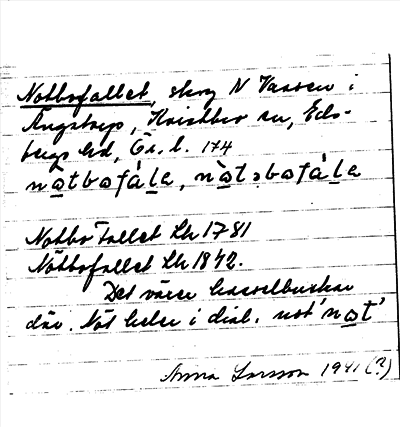 Notbofallet, skog N Vassen i
Ängstorp, Kvistbro sn, Eds-
bergs hd, Ör. l. 174
nòtbofá̀le, nòtsbofá̀le
Notbo Fallet Lk 1781
Nötbofallet Lk 1842.
Det växer hasselbuskar
där. Nöt heter i dial. not 'nò̱t'
Anna Larsson 1941 (?)